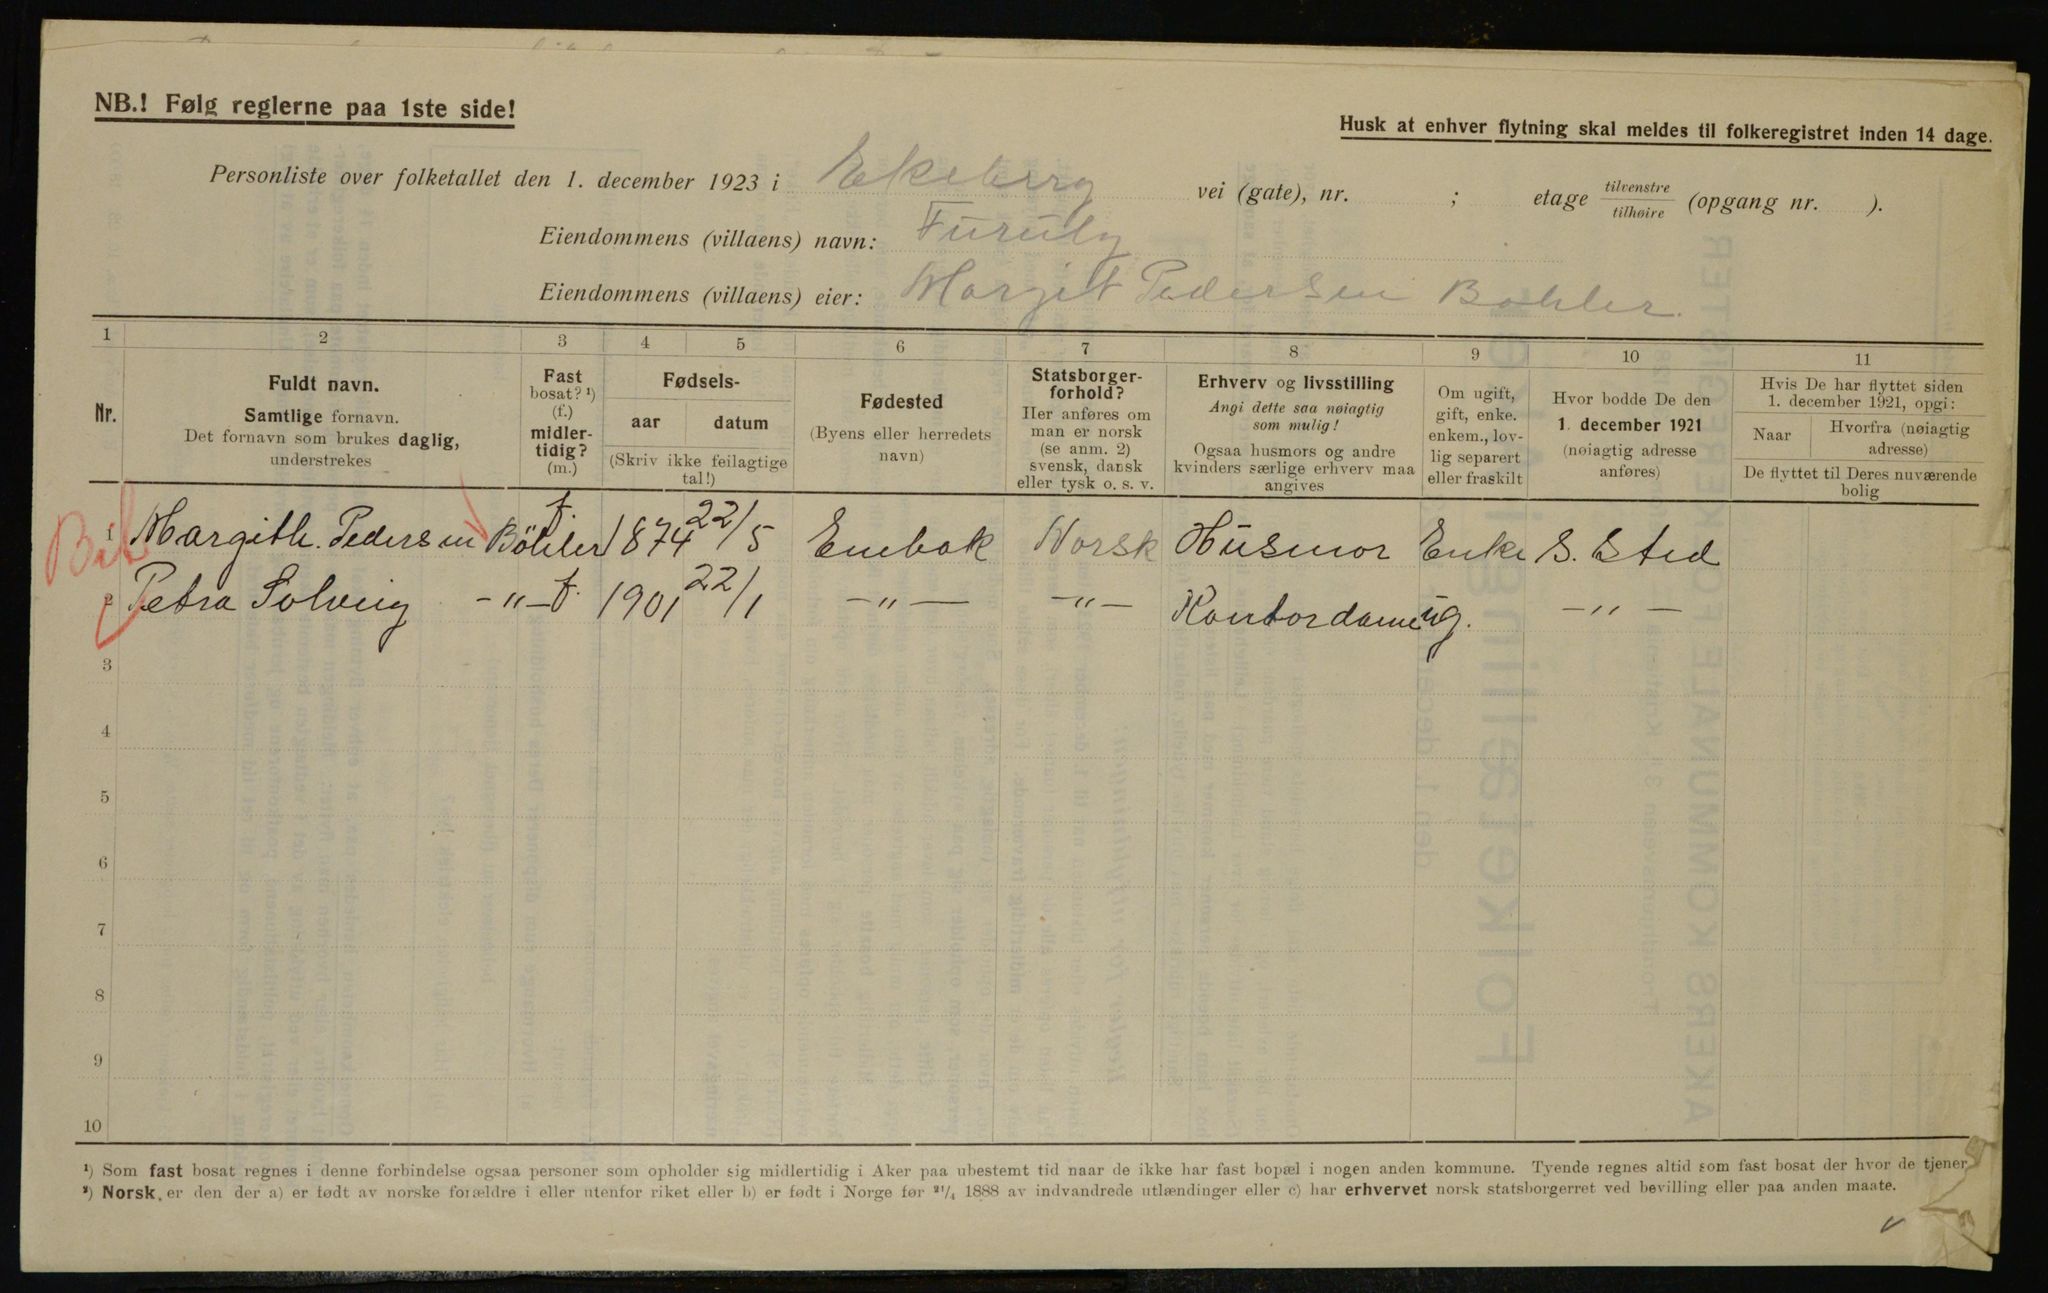 NB.! Følg reglerne paa 1ste side!
Husk at enhver flytning skal meldes til folkeregistret inden 14 dage.
Personliste over folketallet den 1. december 1923 i Ekeberg vei (gate), nr. ; etage tilvenstre/tilhøire (opgang nr. ).
Eiendommens (villaens) navn: Furuly
Eiendommens (villaens) eier: Margit Pedersen Bohler.
1 2 3 4 5 6 7 8 9 10 11
Nr.
Fuldt navn.
Samtlige fornavn.
Det fornavn som brukes daglig,
understrekes
Fast
bosat? ¹)
(f.)
midler-
tidig?
(m.)
Fødsels-
aar datum
(Skriv ikke feilagtige
tal!)
Fødested
(Byens eller herredets
navn)
Statsborger-
forhold?
Her anføres om
man er norsk
(se anm. 2)
svensk, dansk
eller tysk o. s. v.
Erhverv og livsstilling
Angi dette saa nøiagtig
som mulig!
Ogsaa husmors og andre
kvinders særlige erhverv maa
angives
Om ugift,
gift, enke.
enkem., lov-
lig separert
eller fraskilt
Hvor bodde De den
1. december 1921
(nøiagtig adresse
anføres)
Hvis De har flyttet siden
1. december 1921, opgi:
Naar
Hvorfra (nøiagtig
adresse)
De flyttet til Deres nuværende
bolig
1 Margith. Pedersen Böhler f. 1874 22/5 Enebak Norsk Husmor Enke S. Sted
2 Petra Solveig -"- f. 1901 22/1 -"- -"- Kontordame ug. -"-
3
4
5
6
7
8
9
10
¹) Som fast bosat regnes i denne forbindelse ogsaa personer som opholder sig midlertidig i Aker paa ubestemt tid naar de ikke har fast bopæl i nogen anden kommune. Tyende regnes altid som fast bosat der hvor de tjener
²) Norsk, er den der a) er født av norske forældre i eller utenfor riket eller b) er født i Norge før 21/4 1888 av indvandrede utlændinger eller c) har erhvervet norsk statsborgerret ved bevilling eller paa anden maate.